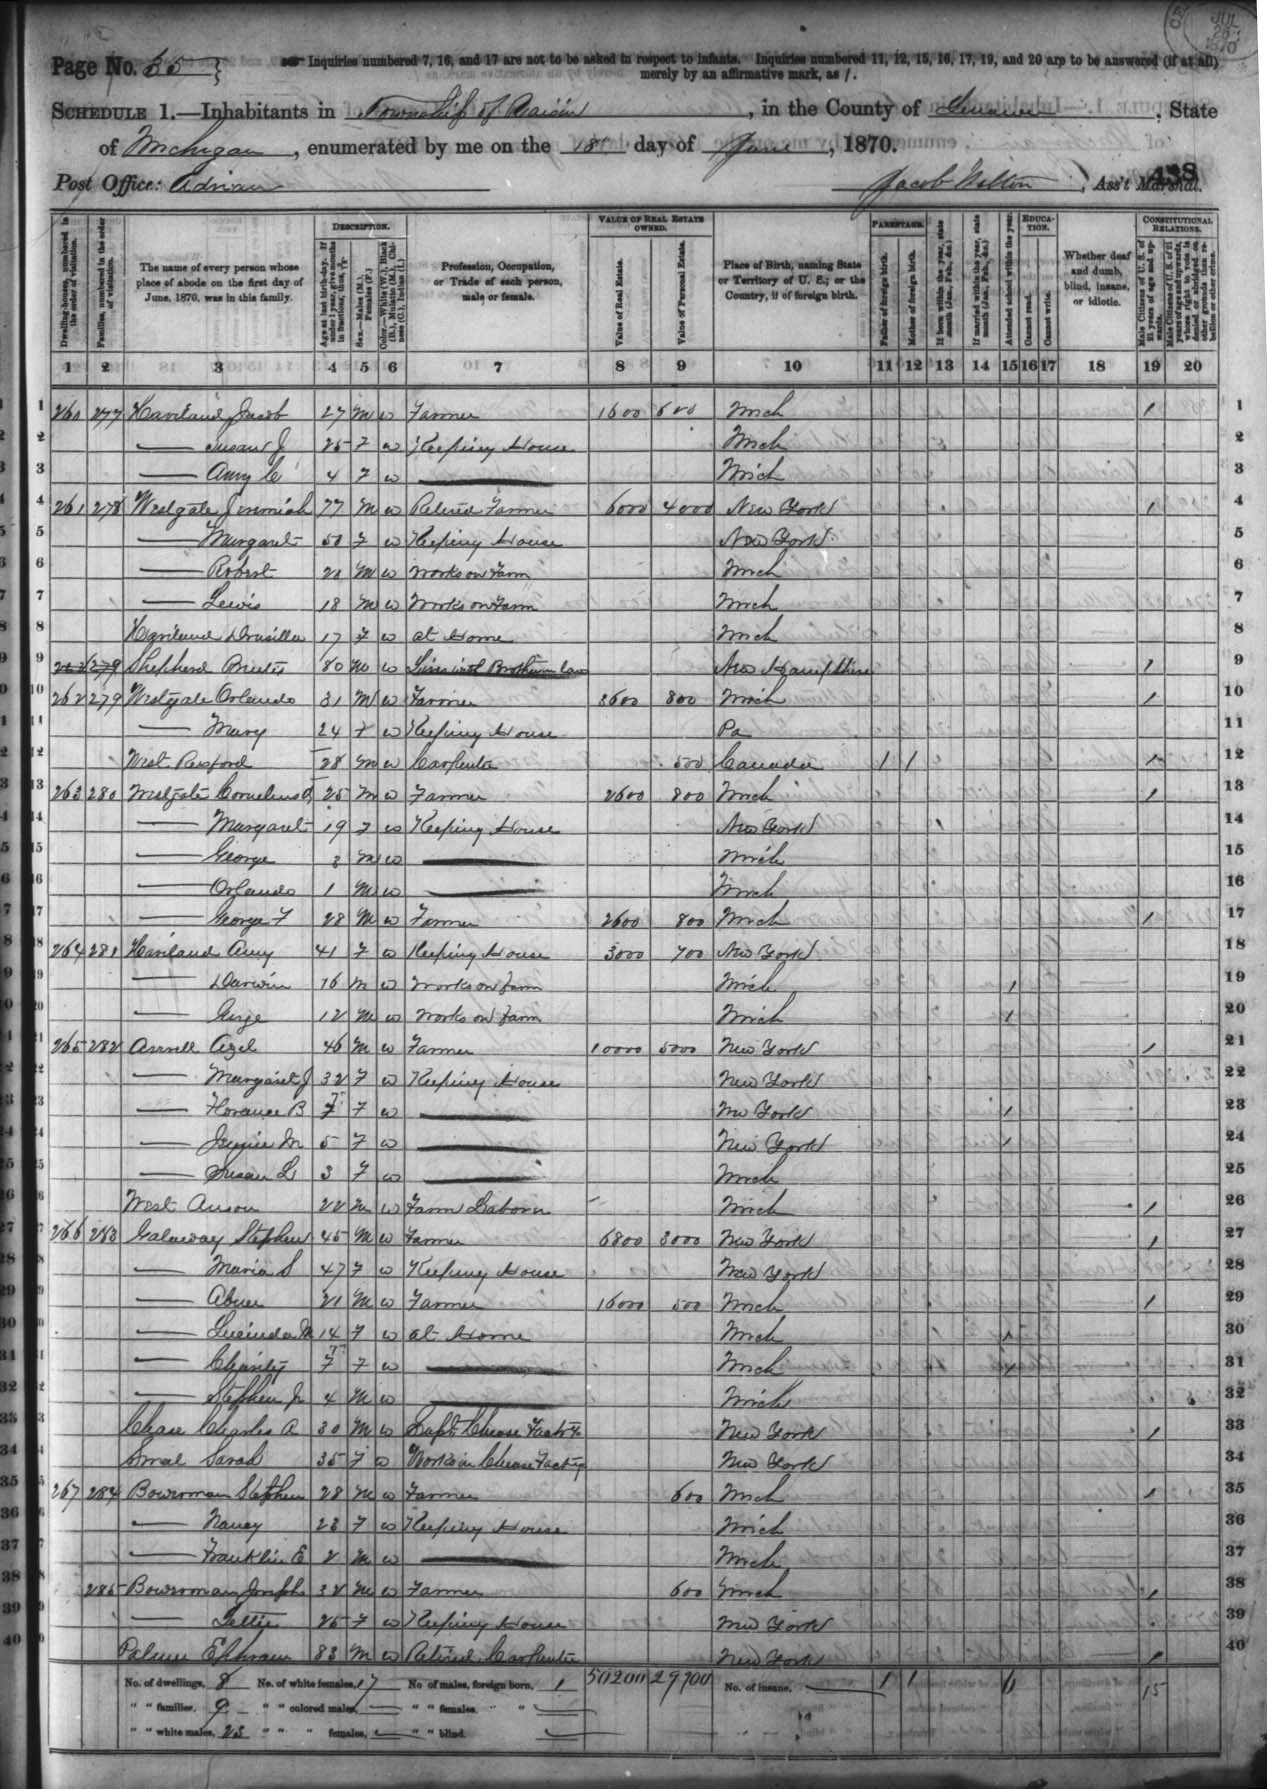 JUL 26 1870
Page No. 35
Inquiries numbered 7, 16, and 17 are not to be asked in respect to infants. Inquiries numbered 11, 12, 15, 16, 17, 19, and 20 are to be answered (if at all)
merely by an affirmative mark, as /.
SCHEDULE 1.—Inhabitants in Township of Raisin, in the County of Lenawee, State
of Michigan, enumerated by me on the 18 day of June, 1870.
438
Post Office: Adrian Jacob Walton, Ass't Marshal.
DESCRIPTION. VALUE OF REAL ESTATE OWNED. PARENTAGE. EDUCATION. CONSTITUTIONAL RELATIONS.
Dwelling-houses, numbered in the order of visitation.
Families, numbered in the order of visitation.
The name of every person whose place of abode on the first day of June, 1870, was in this family.
Age at last birth-day. If under 1 year, give months in fractions, thus, 3/12
Sex.—Males (M.), Females (F.)
Color.—White (W.), Black (B.), Mulatto (M.), Chinese (C.), Indian (I.)
Profession, Occupation, or Trade of each person, male or female.
Value of Real Estate.
Value of Personal Estate.
Place of Birth, naming State or Territory of U. S.; or the Country, if of foreign birth.
Father of foreign birth.
Mother of foreign birth.
If born within the year, state month (Jan., Feb., &c.)
If married within the year, state month (Jan., Feb., &c.)
Attended school within the year.
Cannot read.
Cannot write.
Whether deaf and dumb, blind, insane, or idiotic.
Male Citizens of U. S. of 21 years of age and upwards.
Male Citizens of U. S. of 21 years of age and upwards, whose right to vote is denied or abridged on other grounds than rebellion or other crime.
1 2 3 4 5 6 7 8 9 10 11 12 13 14 15 16 17 18 19 20
1 260 277 Haviland Jacob 27 M W Farmer 1600 600 Mich / 1
2 — Susan J 25 F W Keeping House Mich 2
3 — Amy C 4 F W — Mich 3
4 261 278 Westgate Jeremiah 77 M W Retired Farmer 6000 4000 New York / 4
5 — Margaret 50 F W Keeping House New York 5
6 — Robert 21 M W Works on Farm Mich 6
7 — Lewis 18 M W Works on Farm Mich 7
8 Haviland Drusilla 17 F W at Home Mich 8
9 279 Shepherd 80 M W Lives with Brother in law New Hampshire / 9
10 262 279 Westgate Orlando 31 M W Farmer 2600 800 Mich / 10
11 — Mary 24 F W Keeping House Pa 11
12 West Rexford 28 M W Carpenter 500 Canada / / / 12
13 263 280 Westgate Cornelius 25 M W Farmer 2600 800 Mich / 13
14 — Margaret 19 F W Keeping House New York 14
15 — George 3 M W — Mich 15
16 — Orlando 1 M W — Mich 16
17 — George F 28 M W Farmer 2600 800 Mich / 17
18 264 281 Haviland Amy 41 F W Keeping House 3000 700 New York 18
19 — Darwin 16 M W Works on farm Mich / 19
20 — 12 M W Works on farm Mich / 20
21 265 282 Azel 46 M W Farmer 10000 5000 New York / 21
22 — Margaret J 32 F W Keeping House New York 22
23 — Florance B 7 F W — New York / 23
24 — Jennie M 5 F W — New York / 24
25 — Susan L 3 F W — Mich 25
26 West Anson 22 M W Farm Laborer Mich / 26
27 266 283 Galaway Stephen 45 M W Farmer 6800 3000 New York / 27
28 — Maria S 47 F W Keeping House New York 28
29 — Abner 21 M W Farmer 16000 500 Mich / 29
30 — Lucinda M 14 F W at Home Mich / 30
31 — Charity 7 F W — Mich / 31
32 — Stephen Jr 4 M W Mich 32
33 Chase Charles A 30 M W Supt Cheese Factry New York / 33
34 Smal Sarah 35 F W Works in Cheese Factry New York 34
35 267 284 Bowerman Stephen 28 M W Farmer 600 Mich / 35
36 — Nancy 23 F W Keeping House Mich 36
37 — Franklin E 2 M W — Mich 37
38 285 Bowerman Joseph 32 M W Farmer 600 Mich / 38
39 — Lettie 25 F W Keeping House New York 39
40 Palmer Ephraim 83 M W Retired Carpenter New York / 40
No. of dwellings, 8 No. of white females, 17 No of males, foreign born, 1 50200 29700 No. of insane, — 1 1 6 15
" " families, 9 " " colored males, — " " females, " —
" " white males, 23 " " " females, — " " blind. —